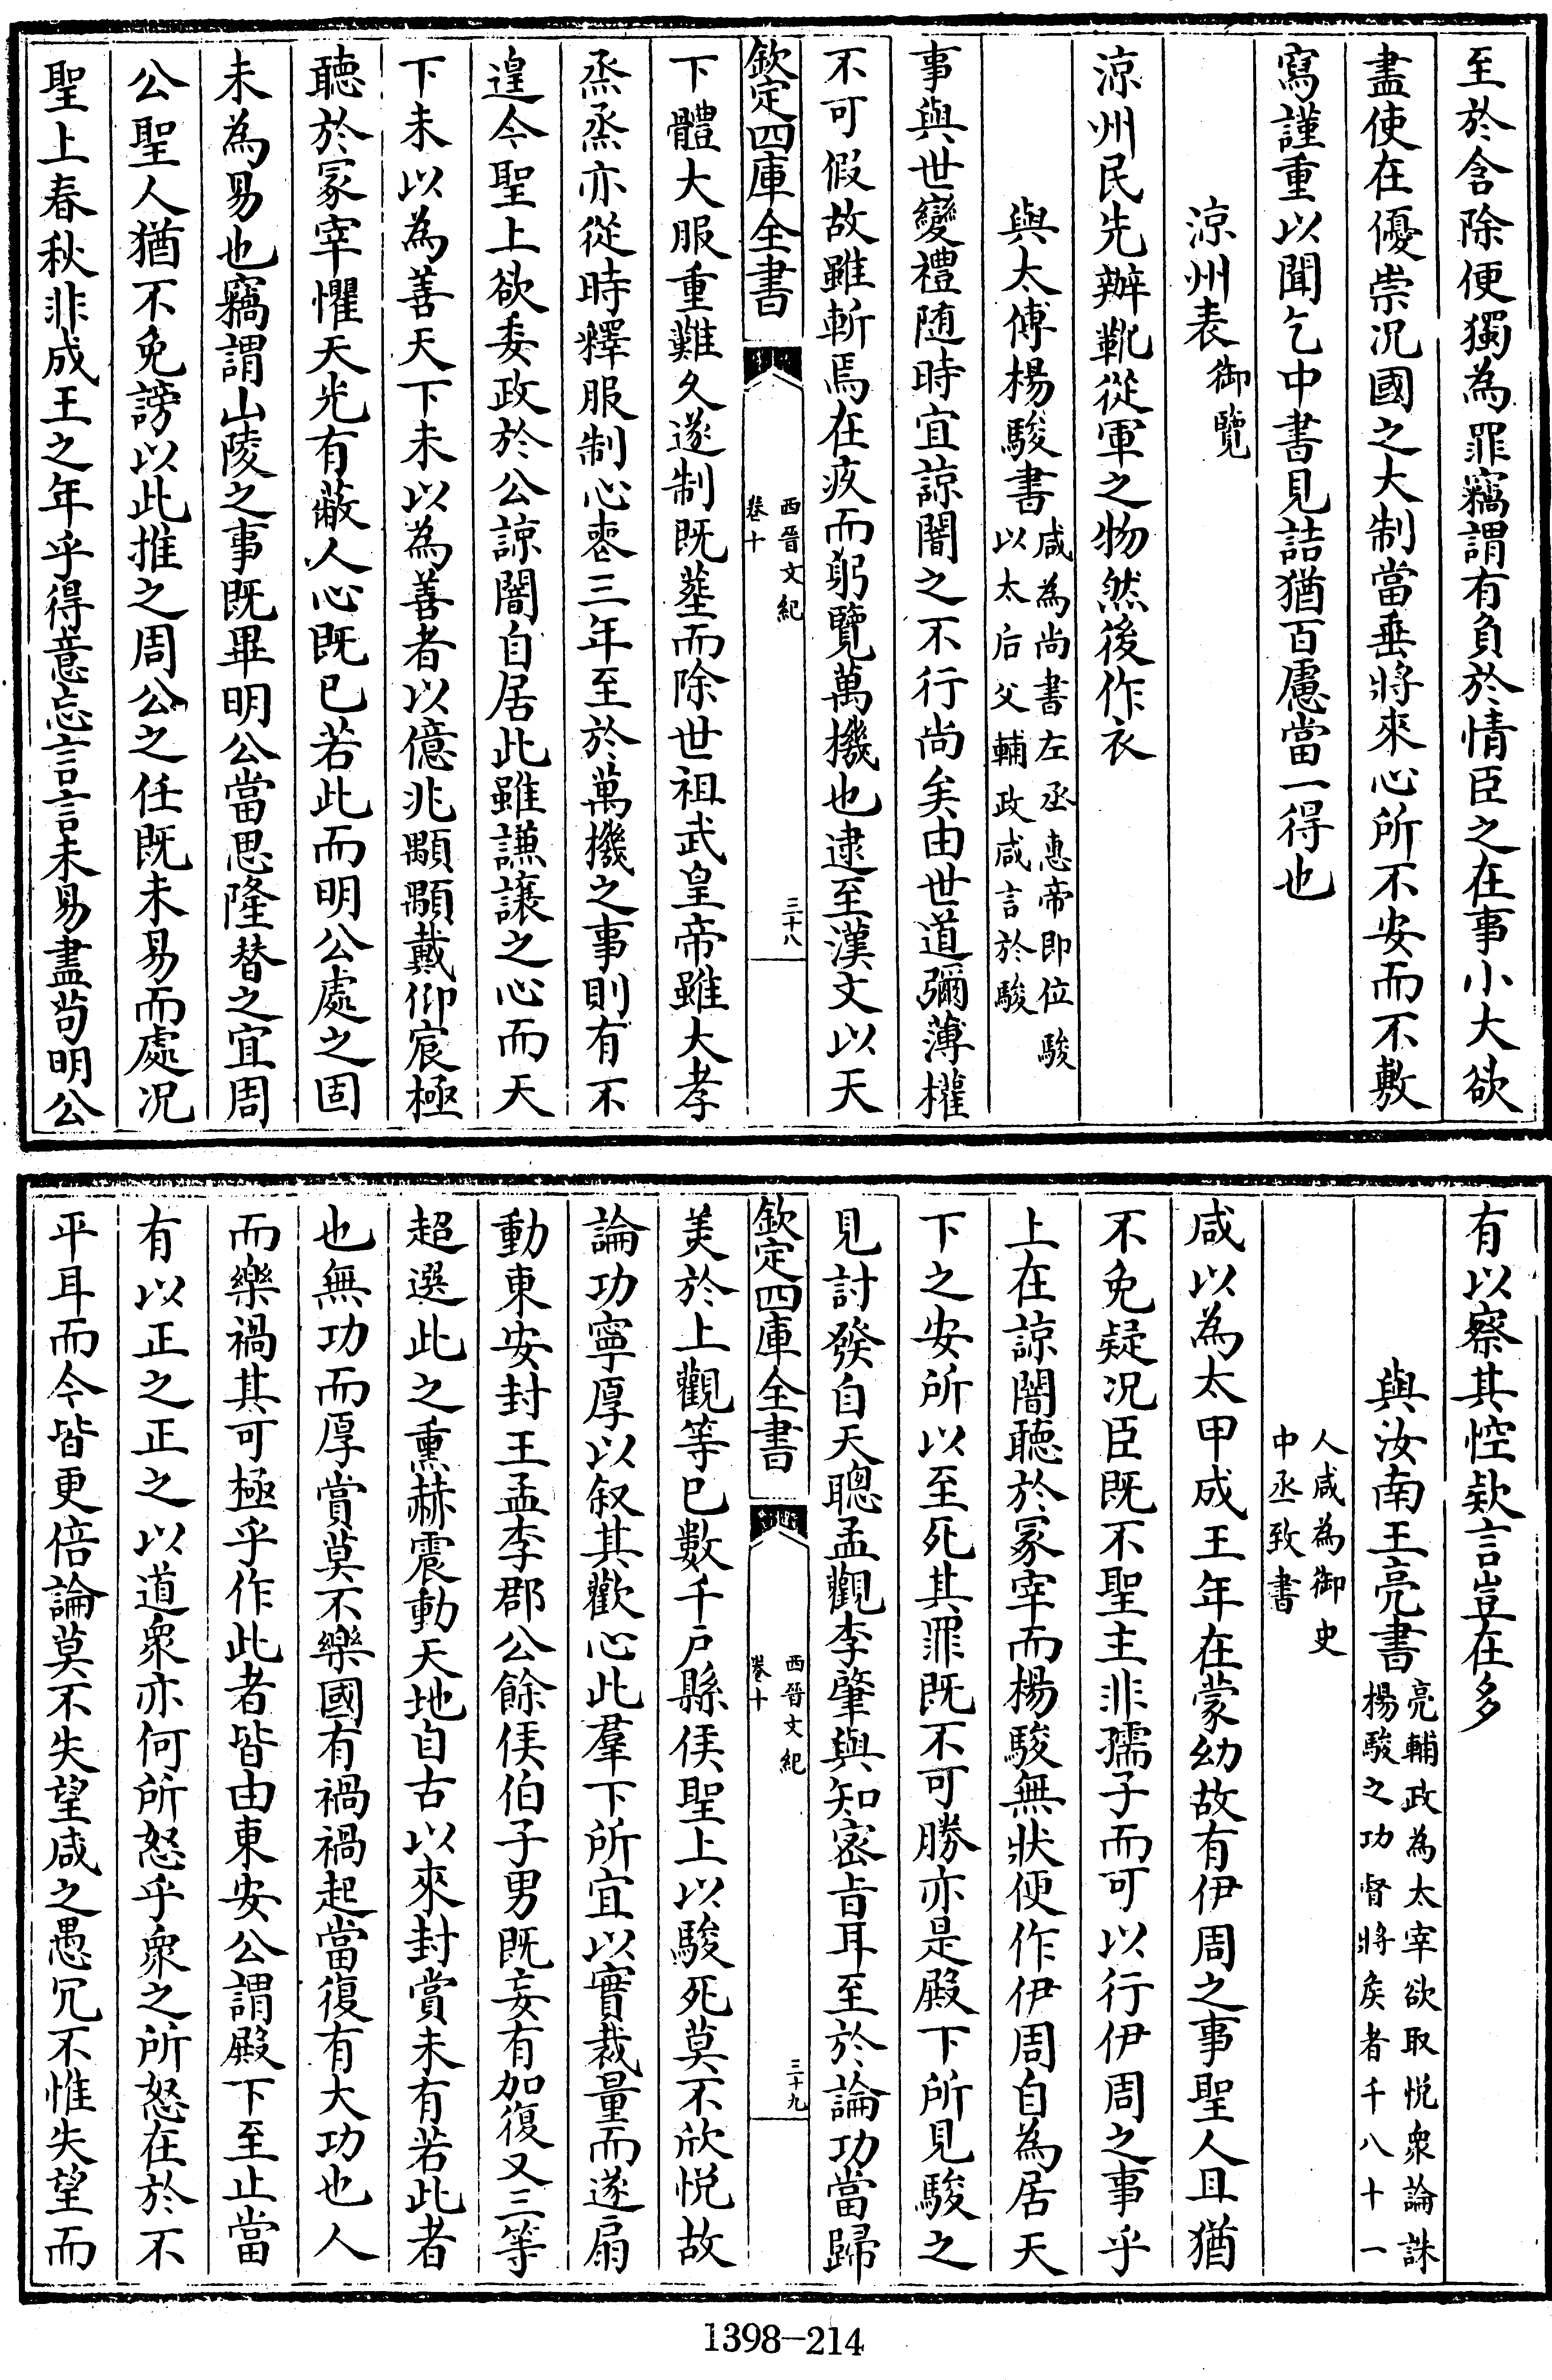 至於含除便獨為罪竊謂有負於情臣之在事小大欲
盡使在優崇况國之大制當垂將來心所不安而不敷
寫謹重以聞乞中書見詰猶百慮當一得也
涼州表御覽
涼州民先辦靴從軍之物然後作衣
與太傅楊駿書咸為尚書左丞惠帝即位駿
以太后父輔政咸言於駿
事與世變禮随時宜諒闇之不行尚矣由世道彌薄權
不可假故雖斬焉在疚而躬覽萬機也逮至漢文以天
欽定四庫全書
西晉文紀
卷十
三十八
下體大服重難久遂制既塟而除世祖武皇帝雖大孝
烝烝亦從時釋服制心䘮三年至於萬機之事則有不
遑今聖上欲委政於公諒闇自居此雖謙讓之心而天
下未以為善天下未以為善者以億兆顒顒戴仰宸極
聽於冢宰懼天光有蔽人心既已若此而明公處之固
未為易也竊謂山陵之事既畢明公當思隆替之宜周
公聖人猶不免謗以此推之周公之任既未易而處况
聖上春秋非成王之年乎得意忘言言未易盡茍明公
有以察其悾欵言豈在多
與汝南王亮書亮輔政為太宰欲取悦衆論誅
楊駿之功督將矦者千八十一
人咸為御史
中丞致書
咸以為太甲成王年在蒙幼故有伊周之事聖人且猶
不免疑况臣既不聖主非孺子而可以行伊周之事乎
上在諒闇聽於冢宰而楊駿無狀便作伊周自為居天
下之安所以至死其罪既不可勝亦是殿下所見駿之
見討發自天聰孟觀李肇與知宻㫖耳至於論功當歸
欽定四庫全書
西晉文紀
卷十
三十九
美於上觀等已數千戶縣侯聖上以駿死莫不欣悦故
論功寧厚以叙其歡心此羣下所宜以實裁量而遂扇
動東安封王孟李郡公餘侯伯子男既妄有加復又三等
超選此之熏赫震動天地自古以來封賞未有若此者
也無功而厚賞莫不樂國有禍禍起當復有大功也人
而樂禍其可極乎作此者皆由東安公謂殿下至止當
有以正之正之以道衆亦何所怒乎衆之所怒在於不
平耳而今皆更倍論莫不失望咸之愚冗不惟失望而
1398-214